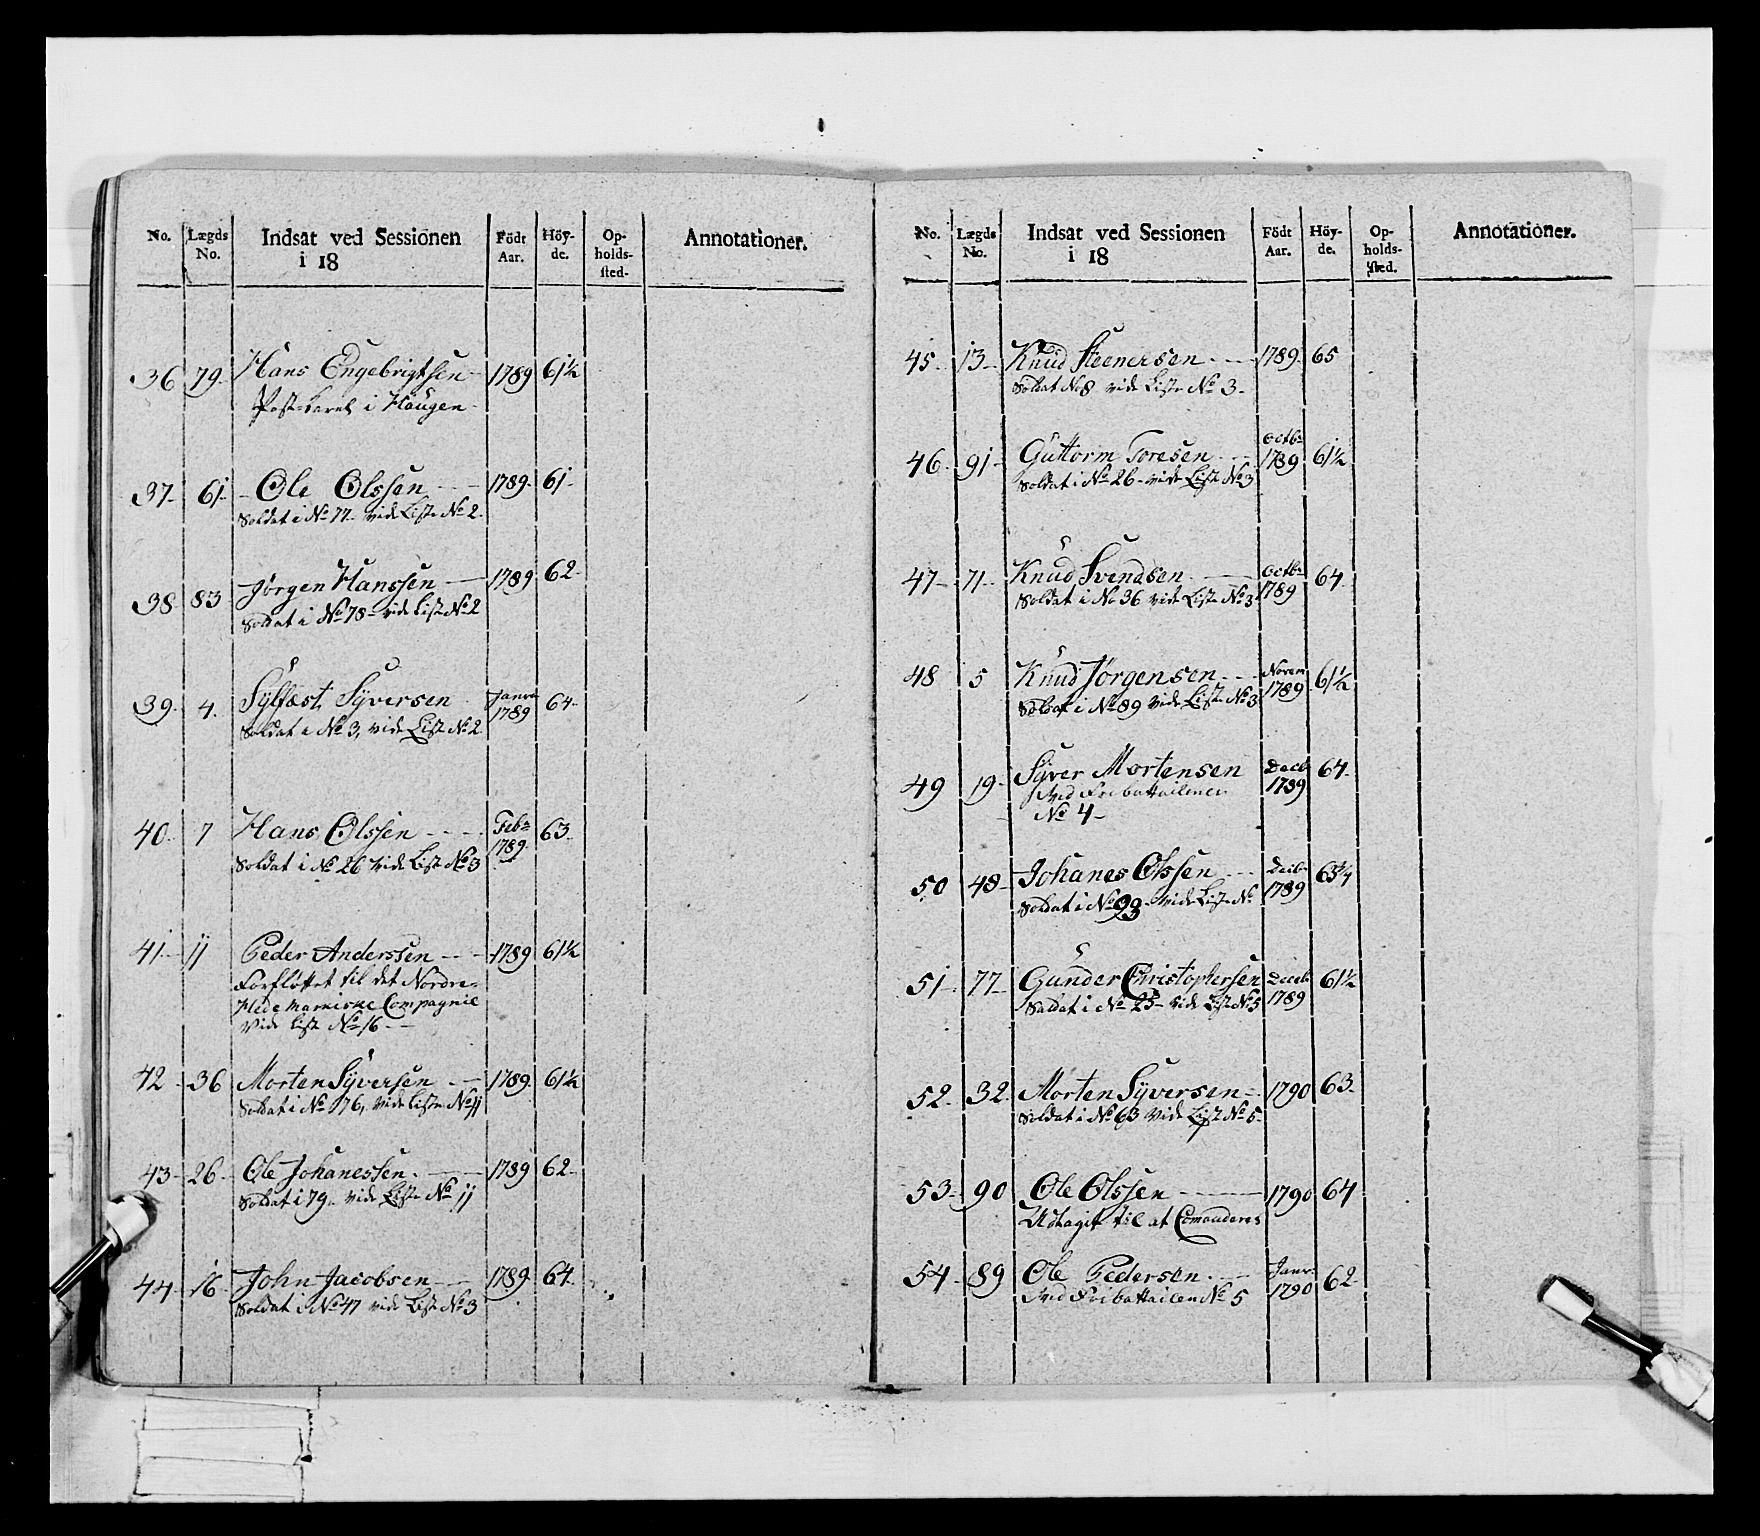 No. Lægds No. Indsat ved Sessionen i 18 Födt Aar. Höy-de. Op-holds-sted. Annotationer.
36 79 Hans Engebrigtsen 1789 61½
i Haugen
37 61 Ole Olssen 1789 61
Soldat i No 77 vide Liste No 2
38 83 Jørgen Hanssen 1789 62
Soldat i No 78 vide Liste No 2
39 4 Sylfæst Syversen Janv 1789 64
Soldat i No 3, vide Liste No 2
40 7 Hans Olssen Feb 1789 63
Soldat i No 26 vide Liste No 3
41 11 Peder Anderssen 1789 61½
Forflöttet til det Nordre
Hedemarkiske Compagnie
vide Liste No 16
42 36 Morten Syversen 1789 61½
Soldat i No 76, vide Liste No 11
43 26 Ole Johanessen 1789 62
Soldat i 79 vide Liste No 11
44 16 John Jacobsen 1789 64
Soldat i No 47 vide Liste No 3
No. Lægds No. Indsat ved Sessionen i 18 Födt Aar. Höy-de. Op-holds-sted. Annotationer.
45 13 Knud Steenersen 1789 65
Soldat No 8 vide Liste No 3
46 91 Guttorm Toresen Octbr 1789 61½
Soldat i No 26 vide Liste No 3
47 71 Knud Svendsen Octbr 1789 64
Soldat i No 36 vide Liste No 3
48 5 Knud Jørgensen Novem 1789 61½
Soldat i No 89 vide Liste No 3
49 19 Syver Mortensen Decb 1789 64
Ved Fribattailener
No 4
50 48 Johanes Olssen Decb 1789 63¾
Soldat i No 93 vide Liste No
51 77 Gunder Christophersen Decb 1789 61½
Soldat i No 25 vide Liste No 5
52 32 Morten Syversen 1790 63
Soldat i No 63 vide Liste No 5
53 90 Ole Olssen 1790 64
Udtagit til at Comanderes
54 89 Ole Pedersen Janv 1790 62
Ved Fribattailen No 5